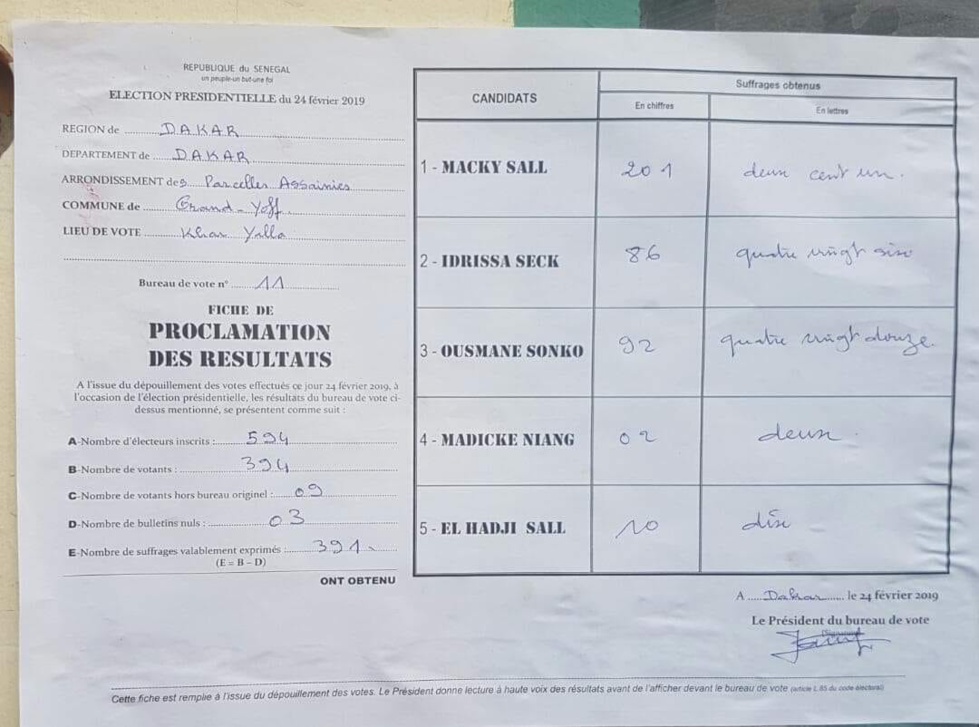 REPUBLIQUE du SENEGAL
un peuple-un but-une foi
ELECTION PRESIDENTIELLE du 24 février 2019
REGION de DAKAR
DEPARTEMENT de DAKAR
ARRONDISSEMENT des Parcelles Assainies
COMMUNE de Grand-Yoff
LIEU DE VOTE Khar Yalla
Bureau de vote n° 11
FICHE DE
PROCLAMATION
DES RESULTATS
A l'issue du dépouillement des votes effectués ce jour 24 février 2019, à
l'occasion de l'élection présidentielle, les résultats du bureau de vote ci-
dessus mentionné, se présentent comme suit :
A-Nombre d'électeurs inscrits : 594
B-Nombre de votants : 394
C-Nombre de votants hors bureau originel : 09
D-Nombre de bulletins nuls : 03
E-Nombre de suffrages valablement exprimés 391
(E = B - D)
ONT OBTENU
CANDIDATS
Suffrages obtenus
En chiffres
En lettres
1 - MACKY SALL 201 deux cent un.
2 - IDRISSA SECK 86 quatre vingt six
3 - OUSMANE SONKO 92 quatre vingt douze.
4 - MADICKE NIANG 02 deux
5 - EL HADJI SALL 10 dix
A Dakar le 24 février 2019
Le Président du bureau de vote
Cette fiche est remplie à l'issue du dépouillement des votes. Le Président donne lecture à haute voix des résultats avant de l'afficher devant le bureau de vote (article L 85 du code électoral)